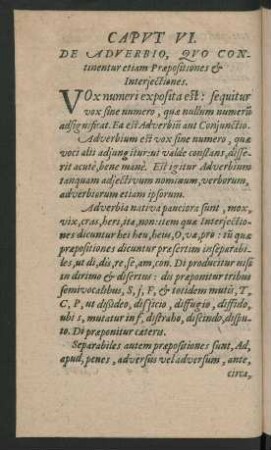 CAPVT VI.
DE ADVERBIO, QVO CON-
tinentur etiam Præpositiones &
Interjectiones.
VOx numeri exposita est: sequitur
vox sine numero, quæ nullum numerũ
adsignificat. Ea est Adverbiũ aut Conjunctio.
Adverbium est vox sine numero, quæ
voci alii adjungitur: ut valde constans, disse-
rit acutè, bene manè. Est igitur Adverbium
tanquam adjectivum nominum, verborum,
adverbiorum etiam ipsorum.
Adverbia nativa pauciora sunt, mox,
vix, cras, heri, ita, non: item quæ Interjectio-
nes dicuntur hei heu, hem, O, va, pro: tũ quæ
præpositiones dicuntur præsertim inseparabi-
les, ut di, dis, re, se, am, con. Di producitur nisi
in dirimo & disertus: dis præponitur tribus
semivocalibus, S, j, F, & totidem mutis, T,
C, P, ut dissideo, disjicio, diffugio, diffido,
ubi s, mutatur in f, distraho, discindo, dispu-
to. Di præponitur cæteris.
Separabiles autem præpositiones sunt, Ad,
apud, penes, adversùs vel adversum, ante,
circa,